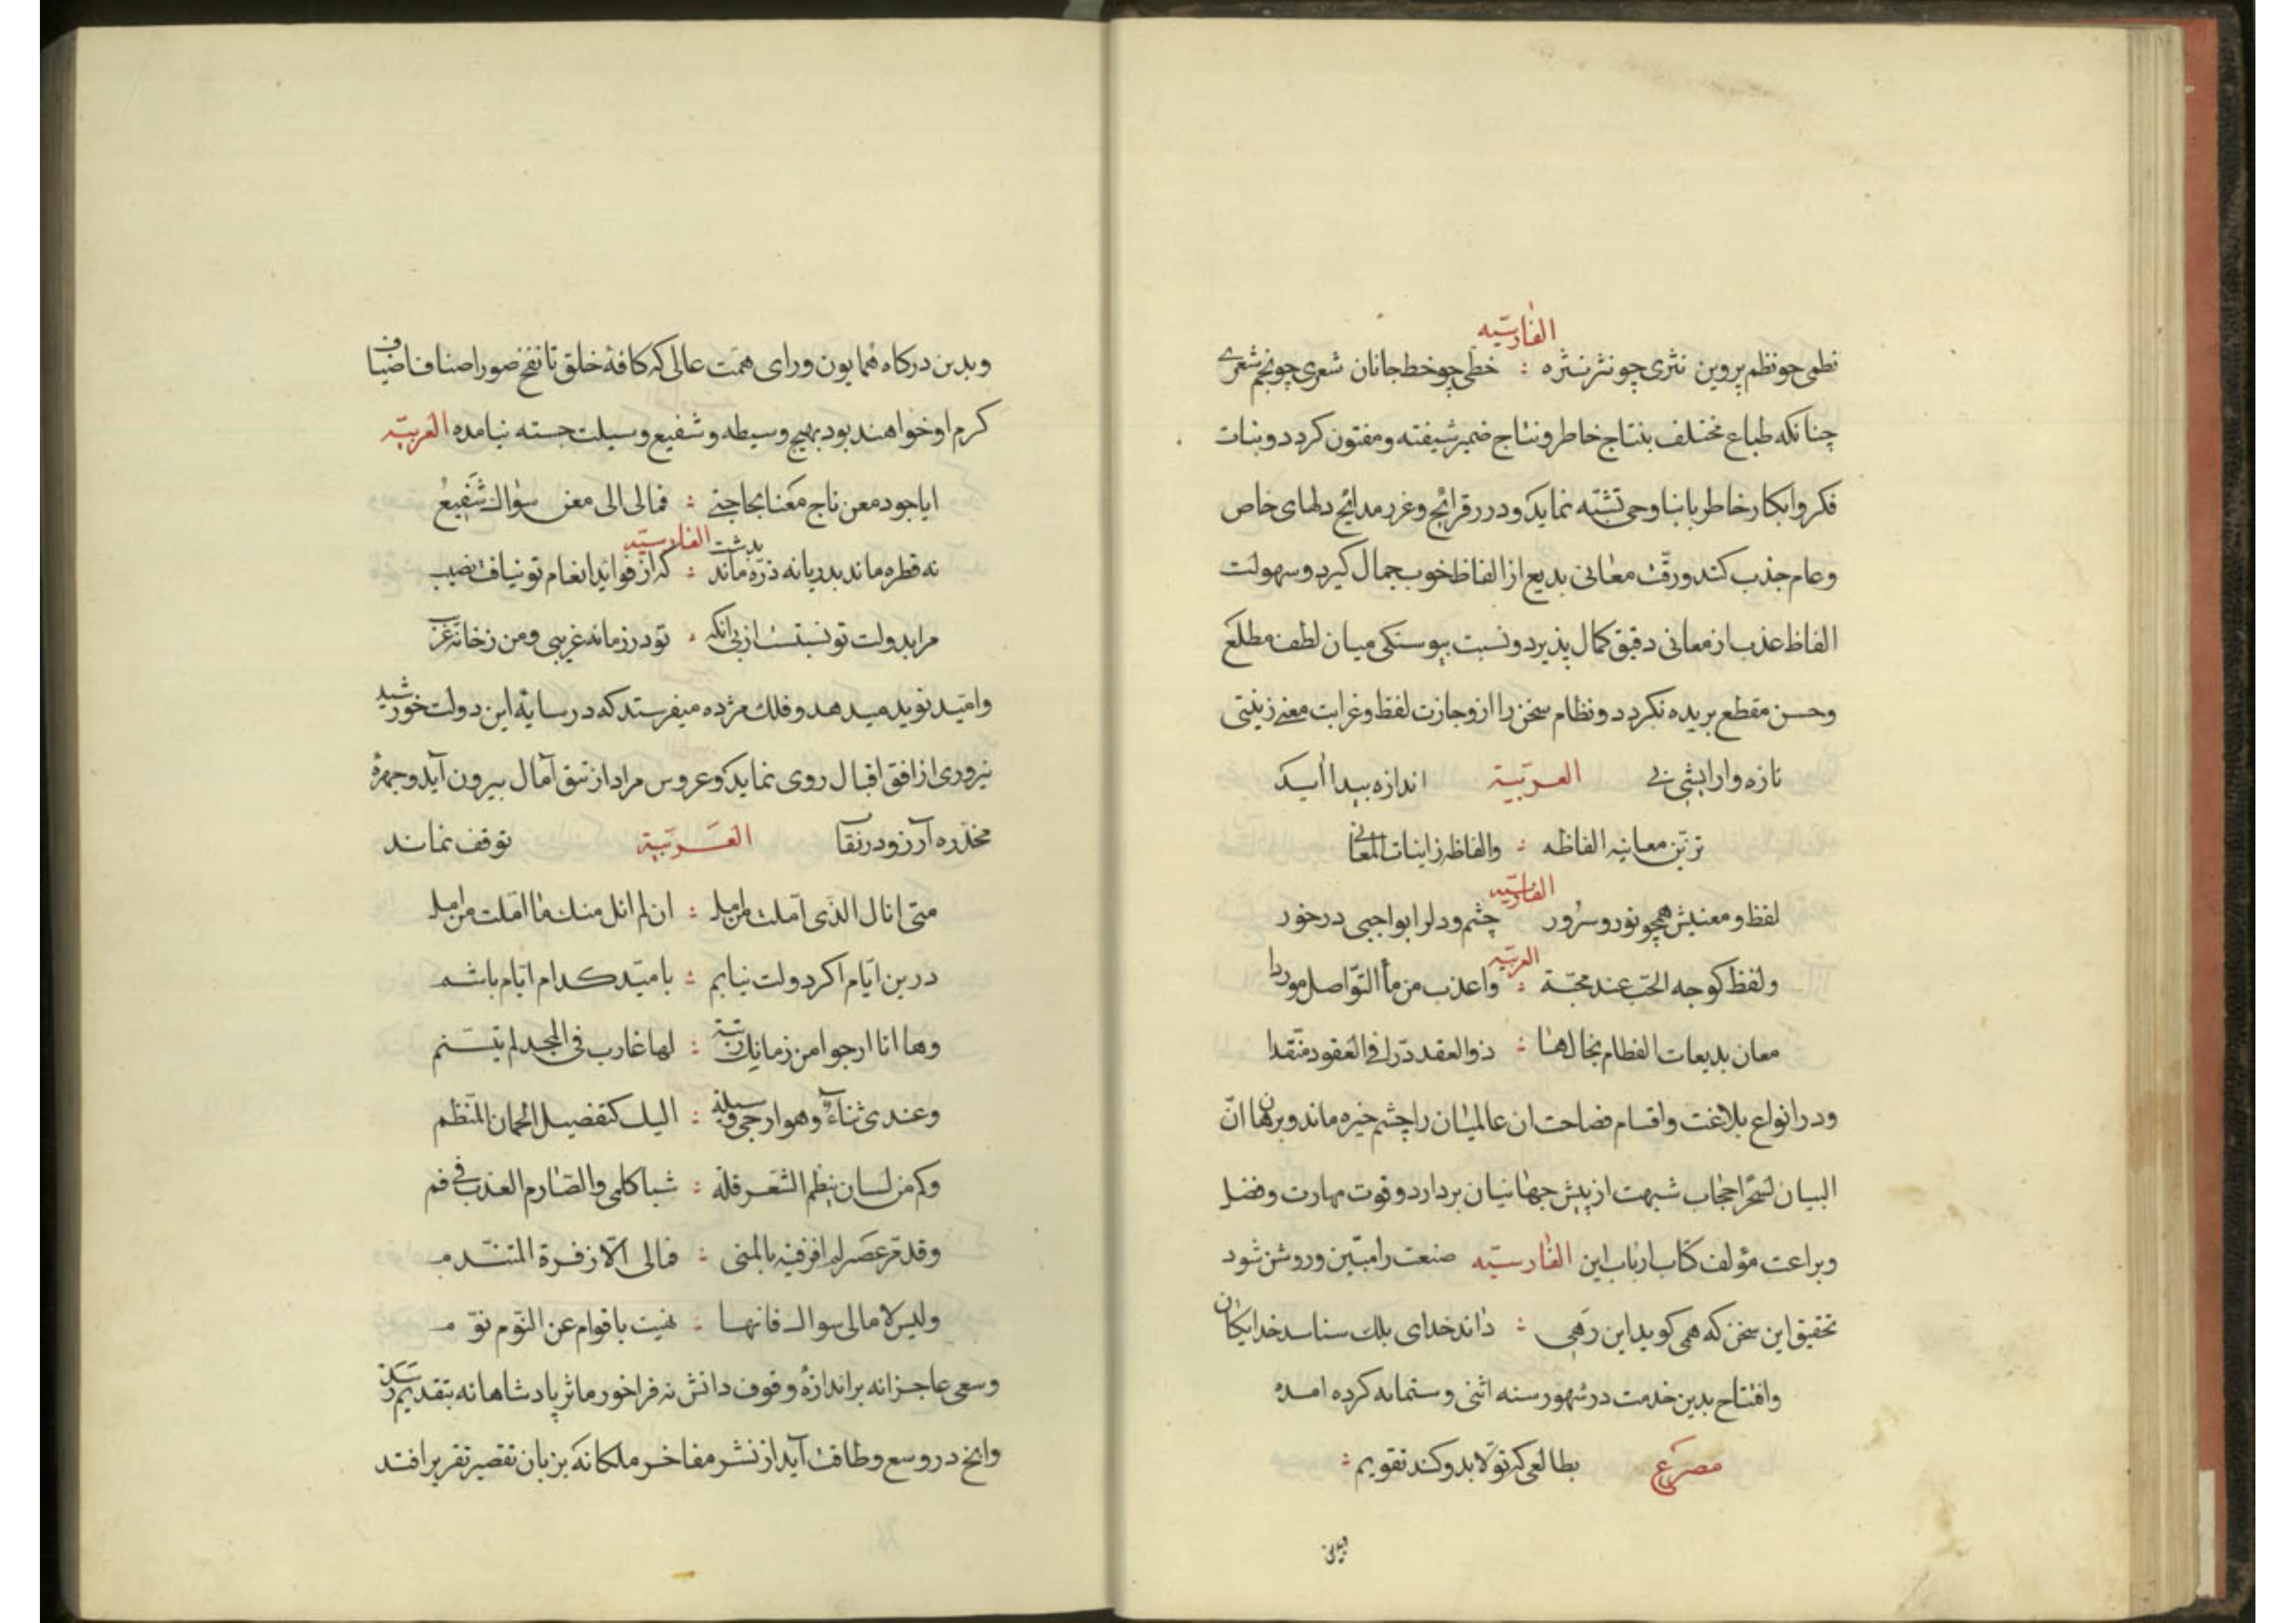 الفارسیّه
نظمی چو نظم پروین نثری چو نثر نثره : خطی چو خط جانان شعری چو نجم شعری
چنانکه طباع مختلف بنتاج خاطر و نتاج ضمیر شیفته و مفتون کردد و بنات
فکر و ابکار خاطر بانبا وحی تشبّه نماید و درر قرائح و غرر مدائح دلهای خاص
و عام جذب کند و رقّت معانی بدیع از الفاظ خوب جمال کیرد و سهولت
الفاظ عذب از معانی دقیق کمال پذیرد و نسبت پیوستکی میان لطف مطلع
و حسن مقطع بریده نکردد و نظام سخن را از وجازت لفظ و غرابت معنی زینتی
تازه و ارایشی بی العربیّة اندازه پیدا اید
تزیّن معانیه الفاظه : والفاظه زاینات المعانی
الفارسیّه
لفظ و معنیش همچو نور و سرور چشم و دل را بواجبی درخور
العربیّه
ولفظ کوجه الحبّ عند محبّة : واعذب من مأ التّواصل موردا
معان بدیعات الفطام بخالها : ذوالعقد درّا فی العقود منقّدا
و در انواع بلاغت و اقسام فصاحت ان عالمیان را چشم خیره ماند و برهان انّ
البیان لسحرا حجاب شبهت از پیش جهانیان بردارد و قوت مهارت و فضل
و براعت مؤلف کتاب ارباب این الفارسیّه صنعت را مبیّن و روشن شود
تحقیق این سخن که همی کوید این رهی : داند خدای بلک شناسد خدایکان
و افتتاح بدین خدمت در شهور سنه اثنی و ستمایه کرده امده
مصرع بطالعی که تولّا بدو کند تقویم :
و بدین درکاه همایون و رای همت عالی که کافهٔ خلق تا نفخ صور اصناف اضیاف
کرم او خواهند بود بهیچ وسیطه و شفیع وسیلت جسته نیامده العربیّه
ایا جود معن ناج معنا بحاجتی : فمالی الی معن سواک شفیعُ
الفارسیّه
نه قطره ماند بدریا نه ذرّه ماند بدشت : که از فواید انعام تو نیافت نصیب
مرا بدولت تو نسبتست از پی انکه : تو در زمانه غریبی و من ز خانه غریب
و امید نوید میدهد و فلک مژده میفرستد که در سایهٔ این دولت خورشید
نیروری از افق اقبال روی نماید و عروس مراد از تتق آمال بیرون آید و چهرهٔ
مخدّره آرزو در نقاب العَربیّة توقف نماند
متی انال الذی امّلت من امل : ان لم انل منک ما امّلت من امل
درین ایّام اکر دولت نیابم : بامیّد کدام ایّام باشم
وها انا ارجوا من زمانک رتبة : لها غارب فی المجد لم یتسنم
وعندی ثناءٌ وهو ارجی وسیلة : الیک کتفضیل الجمان المنظم
وکم من لسان ینظم الشعر فلّه : شبا کلمی والصّارم العذب فی فم
وقد مرّ عصر لم افز فیه بالمنی : فمالی الّا زفرة المتندّم
ولیس لامالی سواک فانها : نفیت باقوام عن النّوم نوّم
و سعی عاجزانه بر اندازهٔ وقوف دانش نه فراخور ماثر پادشاهانه بتقدیم رسد
وانج در وسع و طاقت آید از نشر مفاخر ملکانه که بزبان تقصیر تقریر افتد